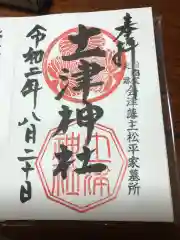 奉拝
会津藩主松平家墓所
土津神社
令和二年八月二十日
土津
神社